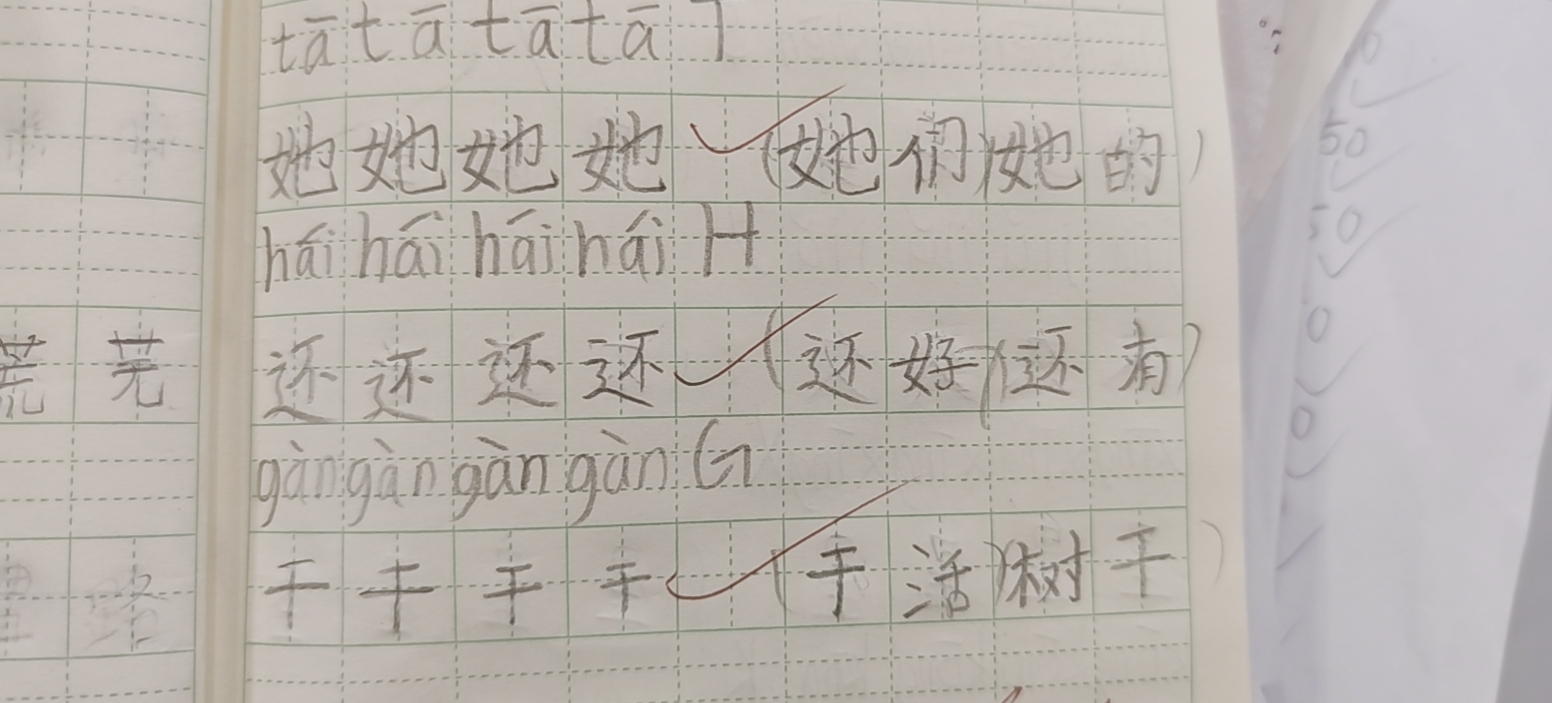 tā tā tā tā T
她 她 她 她 (她们)她的)
hái hái hái hái H
还 还 还 还 (还好)(还有)
gàn gàn gàn gàn G
干 干 干 干 (干活)树干)
芜
50
50
0
0